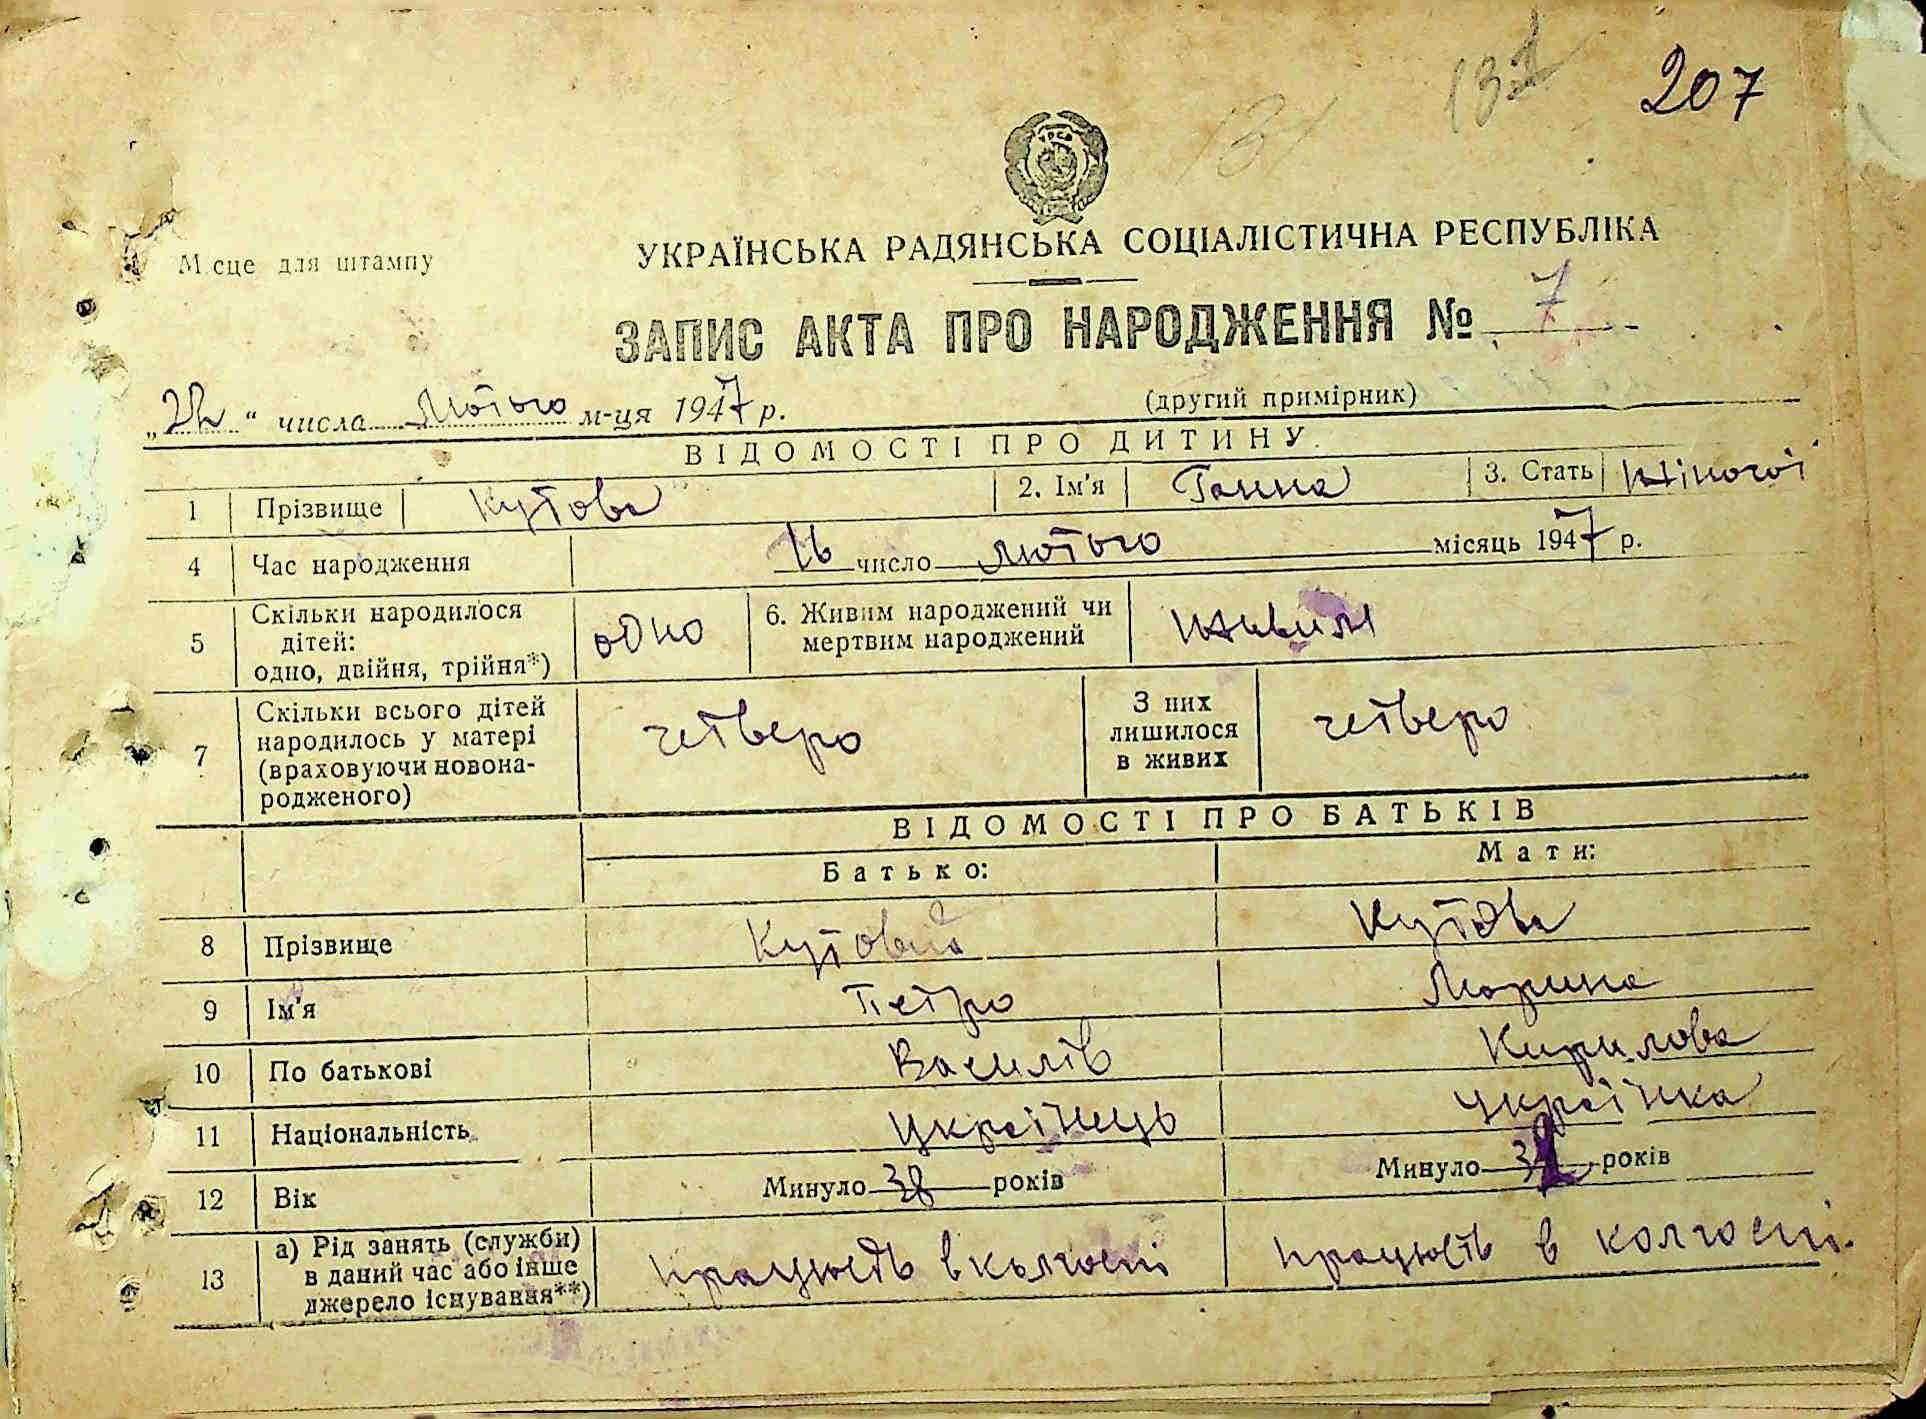 207
131
131
УКРАЇНСЬКА РАДЯНСЬКА СОЦІАЛІСТИЧНА РЕСПУБЛІКА
М сце для штампу
ЗАПИС АКТА ПРО НАРОДЖЕННЯ № 7
„22“ числа лютого м-ця 1947 р.
(другий примірник)
ВІДОМОСТІ ПРО ДИТИНУ.
1 Прізвище Кутова 2. Ім'я Ганна 3. Стать жіночої
4 Час народження 16 число лютого місяць 1947 р.
5 Скільки народилося дітей: одно, двійня, трійня*) одно 6. Живим народжений чи мертвим народжений живим
7 Скільки всього дітей народилось у матері (враховуючи новона-родженого) четверо З них лишилося в живих четверо
ВІДОМОСТІ ПРО БАТЬКІВ
Батько: Мати:
8 Прізвище Кутовий Кутова
9 Ім'я Петро Марина
10 По батькові Василів Кирилова
11 Національність Українець Українка
12 Вік Минуло 38 років Минуло років
13 а) Рід занять (служби) в даний час або інше джерело існування**) працюєть в колгоспі працюєть в колгоспі.